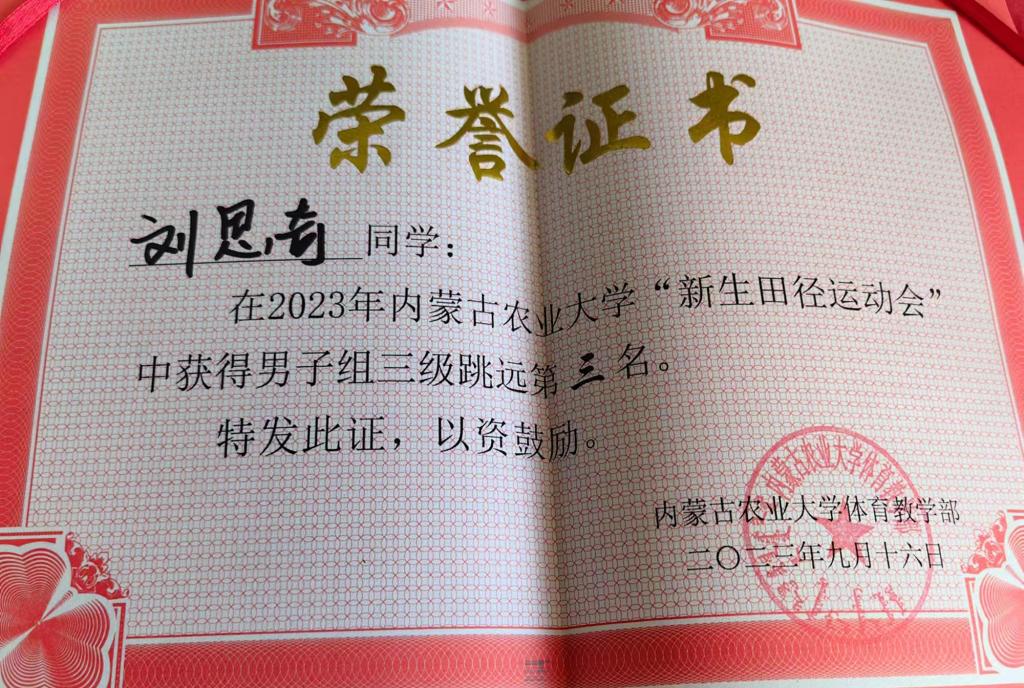 荣誉证书
刘思奇 同学：
在2023年内蒙古农业大学“新生田径运动会”
中获得男子组三级跳远第三名。
特发此证，以资鼓励。
内蒙古农业大学体育教学部
二〇二三年九月十六日
内蒙古农业大学体育教